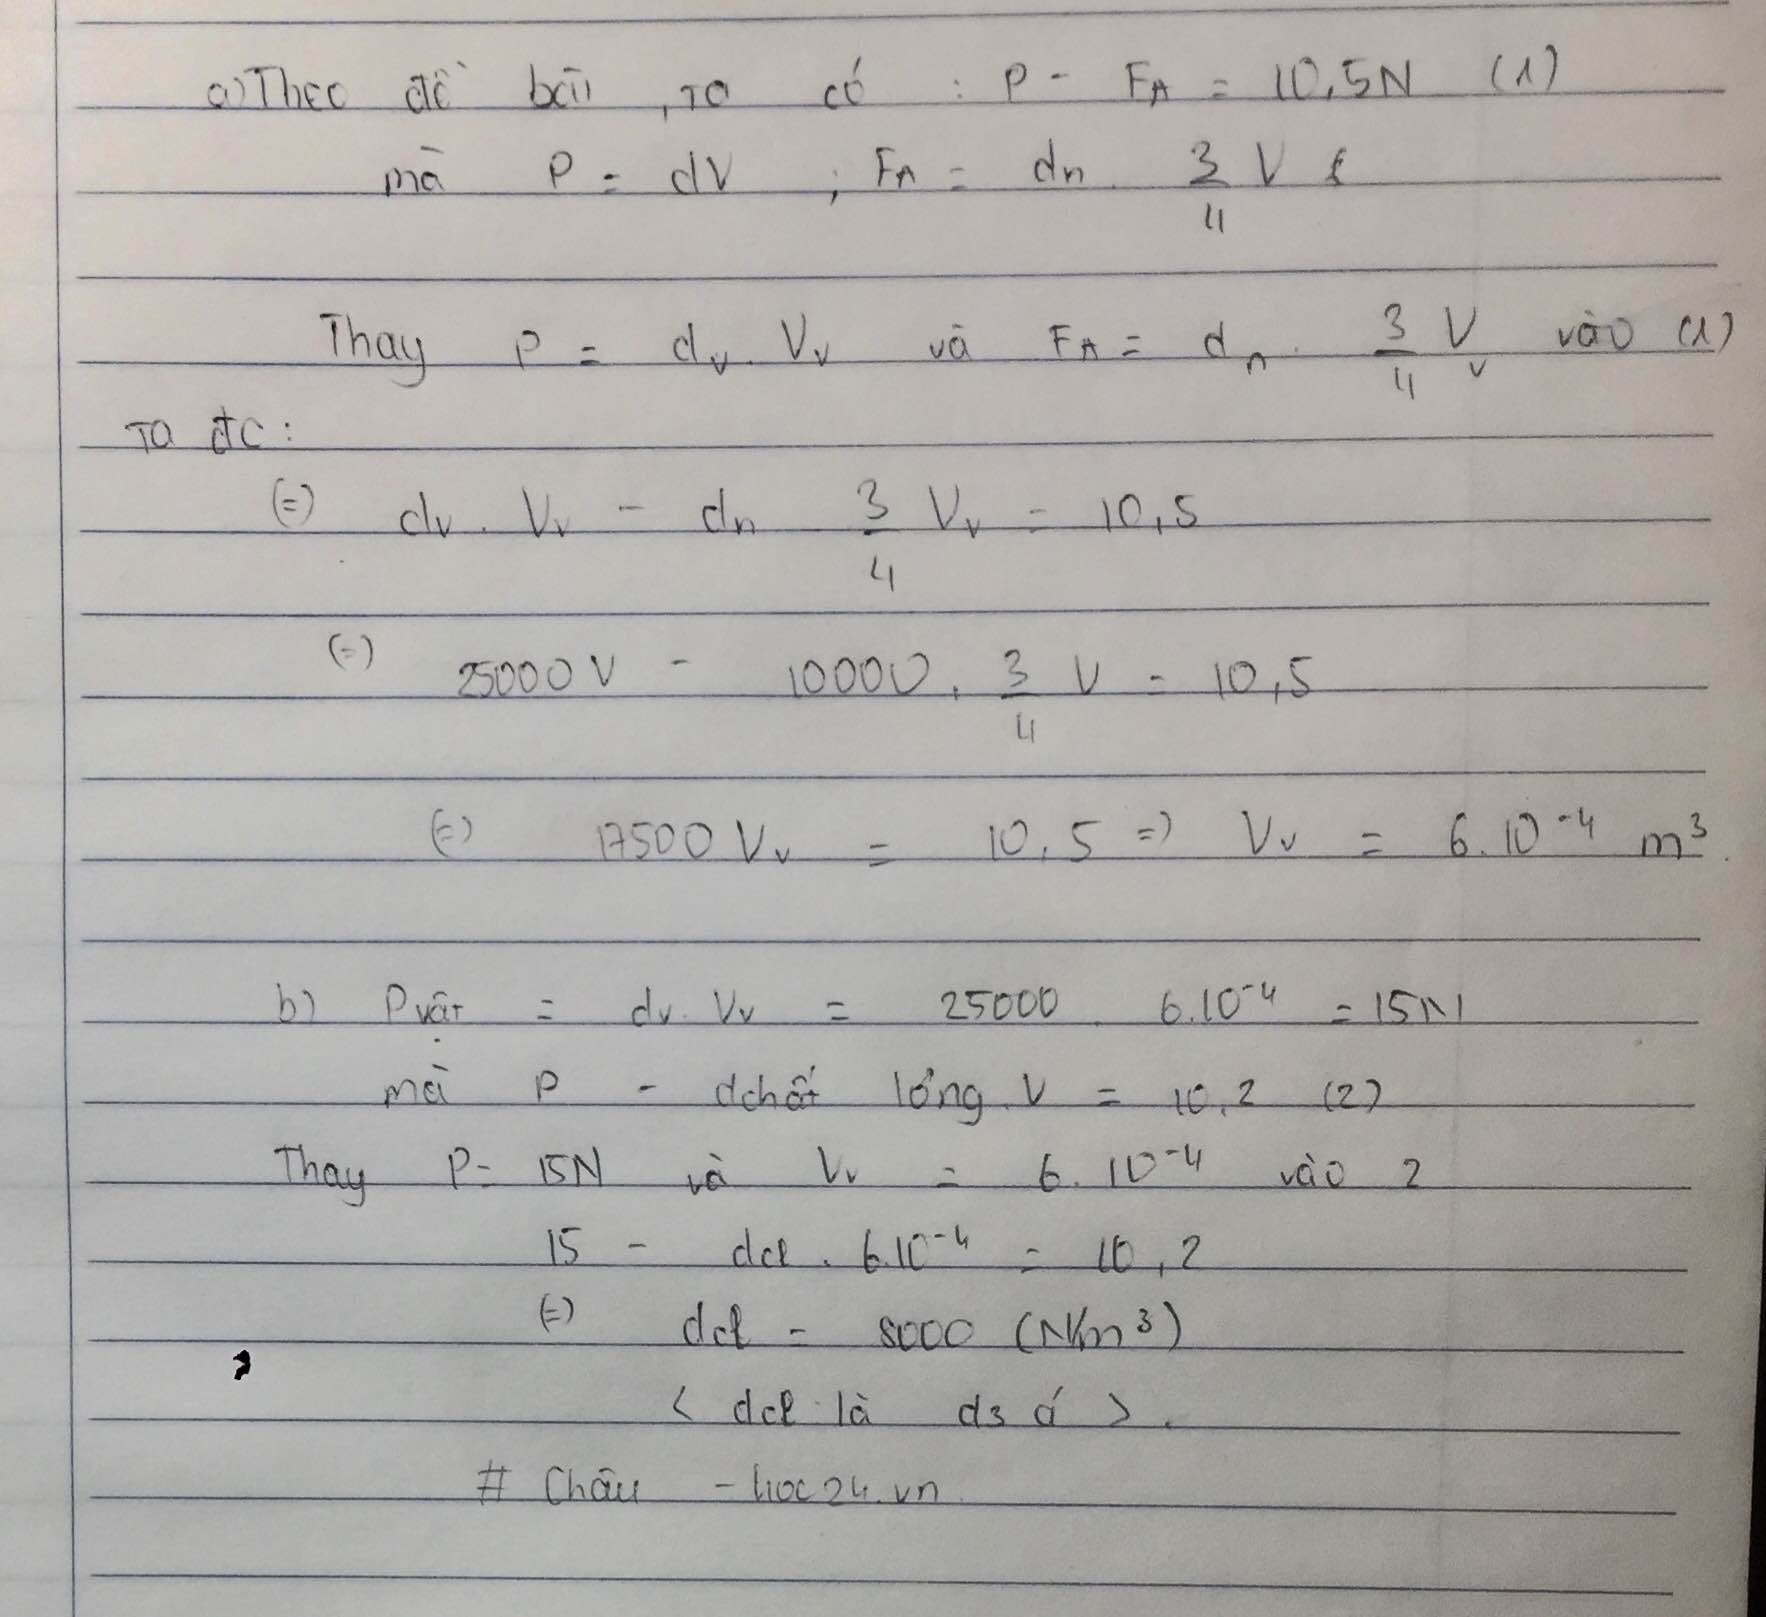 a) Theo đề bài, ta có : P - FA = 10,5N (1)
mà P = dV ; FA = dn. 3/4 V
Thay P = dv. Vv và FA = dn. 3/4 Vv vào (1)
ta đc:
(=) dv. Vv - dn 3/4 Vv = 10,5
(=) 25000V - 10000. 3/4 V = 10,5
(=) 17500Vv = 10,5 => Vv = 6.10⁻⁴ m³.
b) Pvật = dv. Vv = 25000. 6.10⁻⁴ = 15N
mà P - dchất lỏng. V = 10,2 (2)
Thay P = 15N và Vv = 6.10⁻⁴ vào 2
15 - dcl. 6.10⁻⁴ = 10,2
(=) dcl = 8000 (N/m³)
< dcl là d3 á >.
# Châu - hoc24.vn